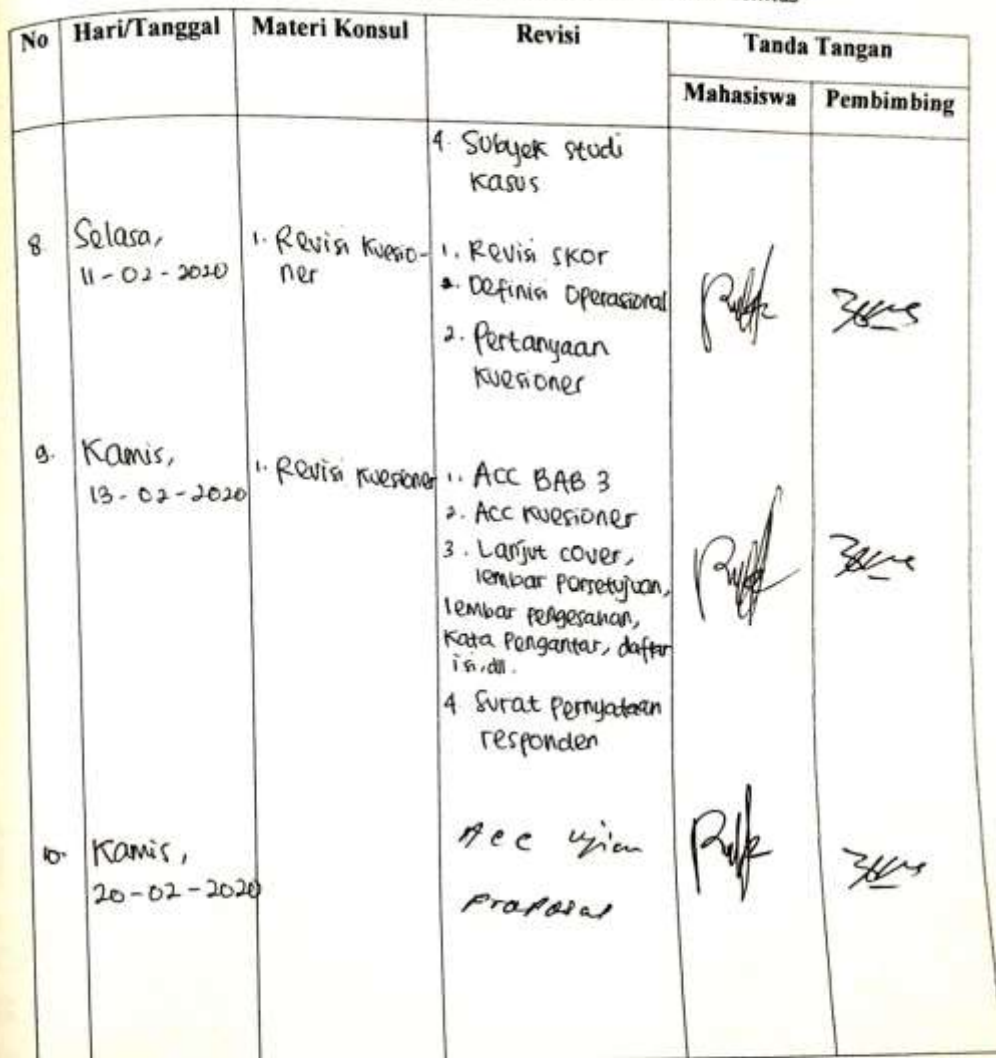 No Hari/Tanggal Materi Konsul Revisi Tanda Tangan
Mahasiswa Pembimbing
4. Subyek studi
kasus
8. Selasa,
11-02-2020
1. Revisi Kuesio-
ner
1. Revisi skor
2. Definisi Operasional
2. Pertanyaan
Kuesioner
9. Kamis,
13-02-2020
1. Revisi Kuesioner
1. ACC BAB 3
2. Acc Kuesioner
3. Lanjut cover,
lembar persetujuan,
lembar pengesahan,
Kata Pengantar, daftar
isi, dll.
4 Surat Pernyataan
responden
10. Kamis,
20-02-2020
Acc ujian
proposal